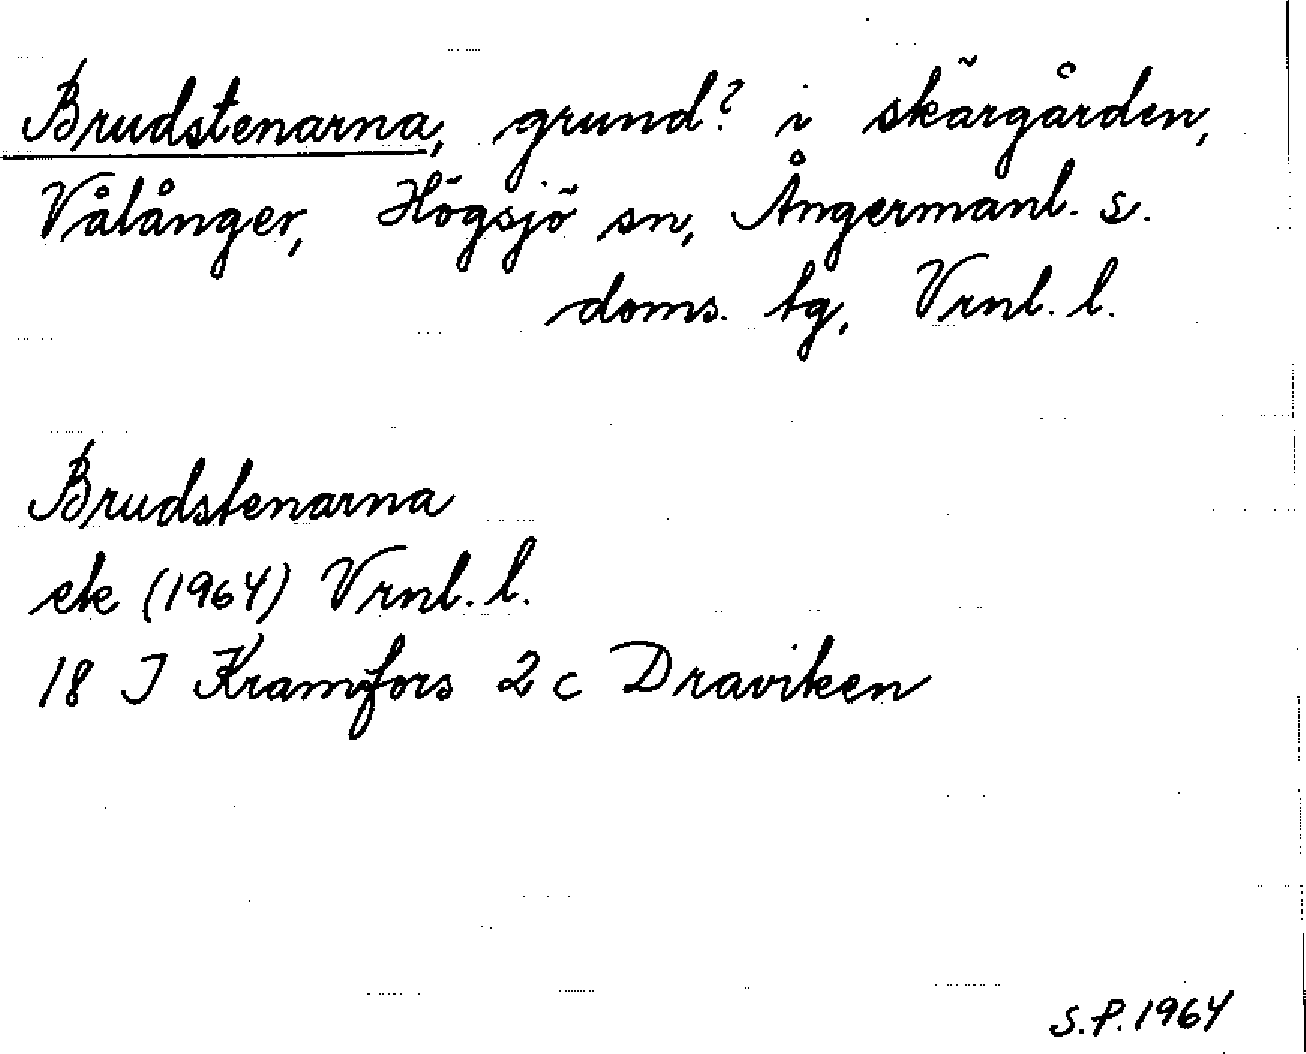 Brudstenarna, grund? i skärgården,
Vålånger, Högsjö sn, Ångermanl. s.
doms. tg, Vrnl. l.
Brudstenarna
ek (1964) Vrnl. l.
18 I Kramfors 2 c Draviken
S.P. 1964